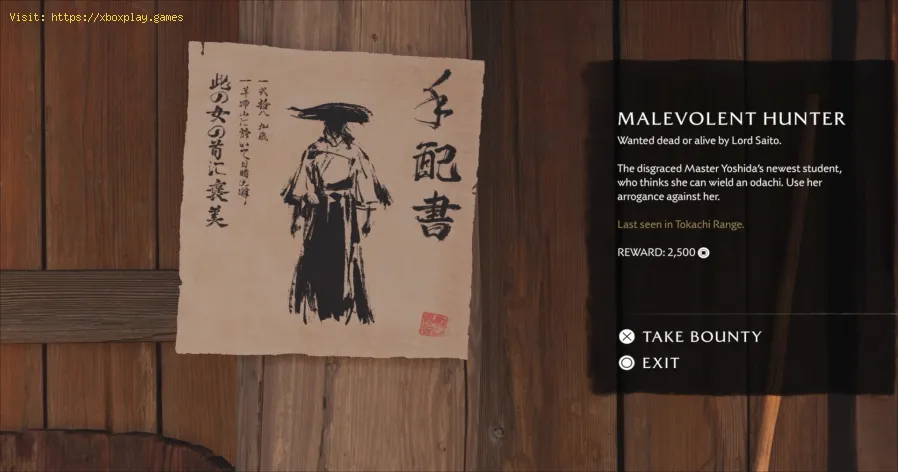 Visit: https://xboxplay.games
手配書
此の女の首に褒美
MALEVOLENT HUNTER
Wanted dead or alive by Lord Saito.
The disgraced Master Yoshida's newest student,
who thinks she can wield an odachi. Use her
arrogance against her.
Last seen in Tokachi Range.
REWARD: 2,500
TAKE BOUNTY
EXIT